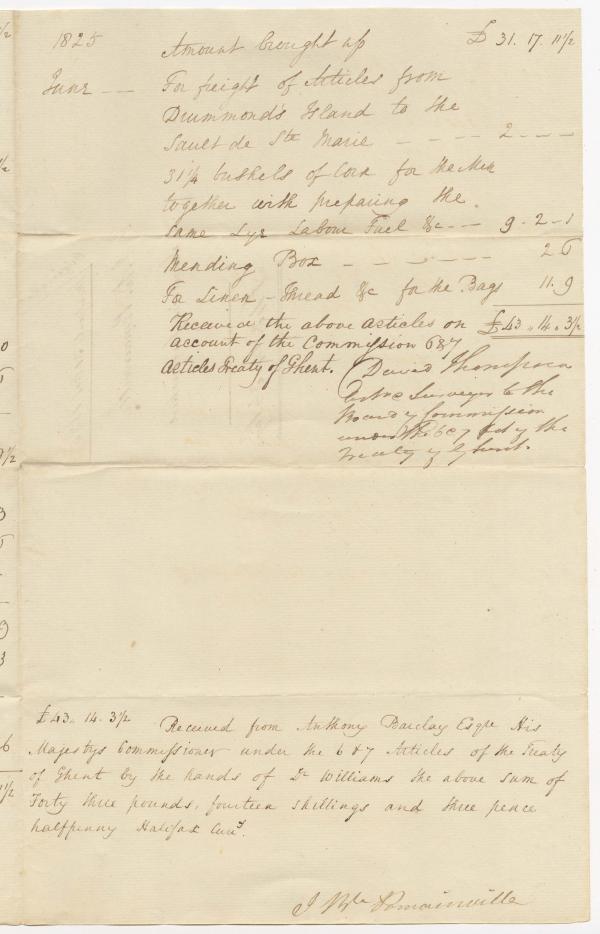 1825 Amount brought up £ 31. 17. 11½
June — — For freight of Articles from
Drummond's Island to the
Sault de Ste Marie — — — — 2 - - -
31¼ bushels of Corn for the Men
together with preparing the
same Lye Labour Fuel &c - - - 9 - 2 - 1
Mending Box — — — — — 2 6
For Linen - Thread &c for the Bags 11. 9
Received the above articles on £43 . 14 . 3½
account of the Commission 6&7
Articles Treaty of Ghent. David Thompson
Surveyor to the
Board of Commission
under the 6 & 7 of the
Treaty of Ghent.
£43. 14. 3½ Received from Anthony Barclay Esqre His
Majestys Commissioner under the 6 & 7 Articles of the Treaty
of Ghent by the hands of Dr Williams the above sum of
Forty three pounds, fourteen shillings and three pence
halfpenny Halifax Curry.
J Bte Romainville